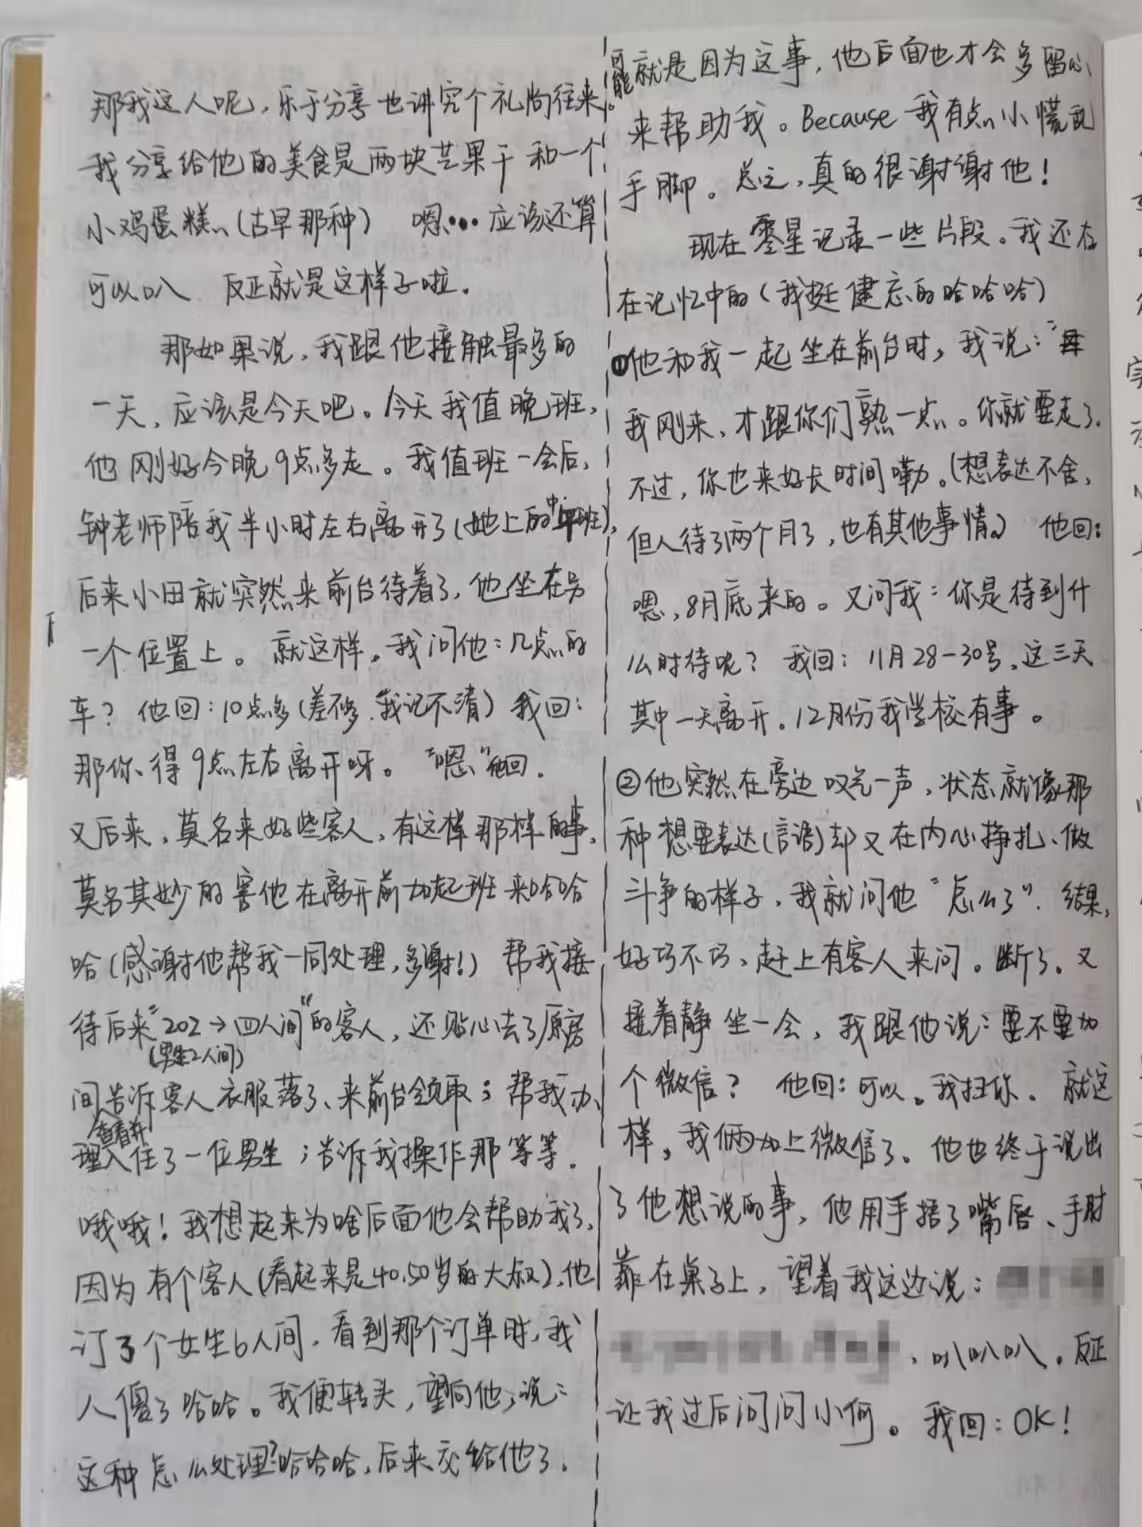 那我这人呢，乐于分享也讲究个礼尚往来。
我分享给他的美食是两块芒果干和一个
小鸡蛋糕、(古早那种)　嗯…应该还算
可以叭　反正就是这样子啦。
那如果说，我跟他接触最多的
一天，应该是今天吧。今天我值晚班，
他刚好今晚9点多走。我值班一会后，
钟老师陪我半小时左右离开了(她上的中班)，
后来小田就突然来前台待着了，他坐在另
一个位置上。就这样。我问他：几点的
车？他回：10点多(差不多，我记不清)我回：
那你得9点左右离开呀。“嗯”他回.
又后来，莫名来好些客人，有这样那样的事，
莫名其妙的害他在离开前加起班来哈哈
哈(感谢他帮我一同处理，多谢!)帮我接
待后来“202→四人间”的客人，还贴心去了原房
(男生2人间)
间告诉客人衣服落了、来前台领取；帮我办
查看并
理入住了一位男生；告诉我操作那等等.
哦哦！我想起来为啥后面他会帮助我了，
因为有个客人(看起来是40.50岁的大叔)，他
订了个女生6人间，看到那个订单时，我
人傻了哈哈。我便转头，望向他，说：
这种怎么处理?哈哈哈，后来交给他了.
可能就是因为这事，他后面也才会多留心
来帮助我。Because我有点小慌乱
手脚。总之，真的很谢谢他！
现在零星记录一些片段。我还存
在记忆中的(我挺健忘的哈哈哈)
①他和我一起坐在前台时，我说：“
我刚来，才跟你们熟一点。你就要走了.
不过，你也来好长时间嘞。(想表达不舍，
但人待了两个月了，也有其他事情。)他回：
嗯，8月底来的。又问我：你是待到什
么时待呢？我回：11月28-30号，这三天
其中一天离开。12月份我学校有事。
②他突然在旁边叹气一声，状态就像那
种想要表达(言语)却又在内心挣扎、做
斗争的样子，我就问他“怎么了”.结果，
好巧不巧、赶上有客人来问。断了。又
接着静坐一会，我跟他说：要不要加
个微信？他回：可以。我扫你.就这
样，我俩加上微信了。他也终于说出
了他想说的事，他用手捂了嘴唇、手肘
靠在桌子上，望着我这边说：
，叭叭叭。反正
让我过后问问小何。我回：OK！